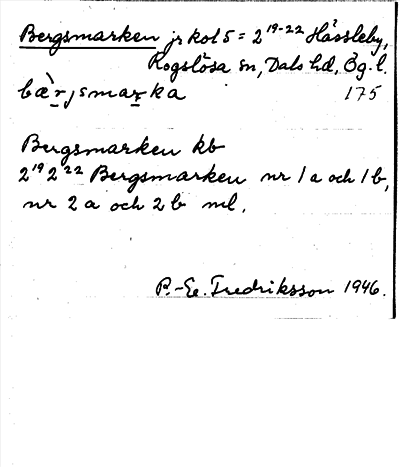 Bergsmarken jr kol 5 = 2¹⁹⁻²² Hässleby,
Rogslösa sn, Dals hd, Ög. l.
bæ̀r̲jsmar̲ka 175
Bergsmarken kb
2¹⁹ 2²² Bergsmarken nr 1a och 1b,
nr 2a och 2b ml.
P.-E. Fredriksson 1946.